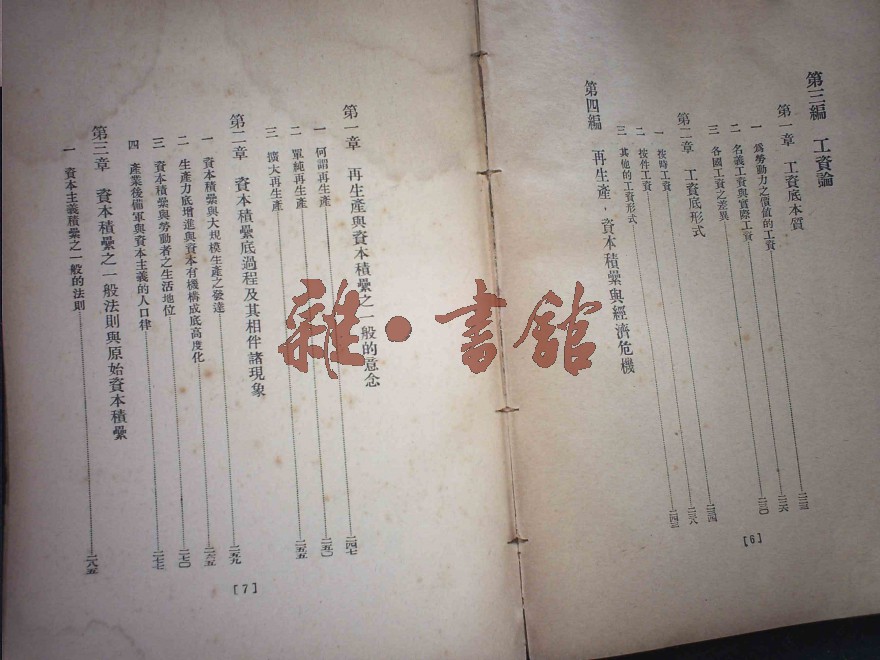 第三編 工資論
第一章 工資底本質
一 爲勞動力之價值的工資
二 名義工資與實際工資
三 各國工資之差異
第二章 工資底形式
一 按時工資
二 按件工資
三 其他的工資形式
第四編 再生產，資本積纍與經濟危機
[6]
第一章 再生產與資本積纍之一般的意念……二四七
一 何謂再生產……二五〇
二 單純再生產……二五五
三 擴大再生產
第二章 資本積纍底過程及其相件諸現象……二五九
一 資本積纍與大規模生產之發達……二六五
二 生產力底增進與資本有機構成底高度化……二七〇
三 資本積纍與勞動者之生活地位……二七七
四 產業後備軍與資本主義的人口律
第三章 資本積纍之一般法則與原始資本積纍……二八五
一 資本主義積纍之一般的法則
[7]
雜·書館